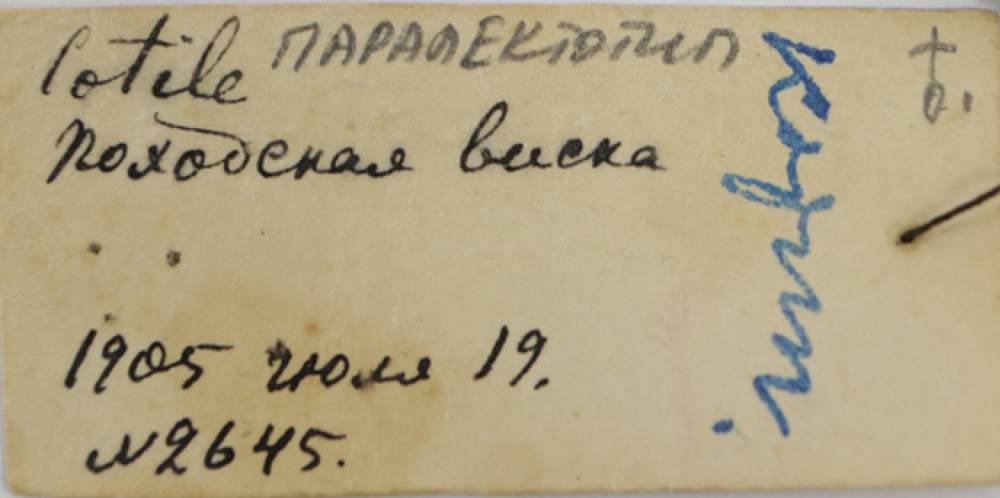 Cotile ПАРАЛЕКТОТИП
Походская виска
1905 июля 19.
№2645.